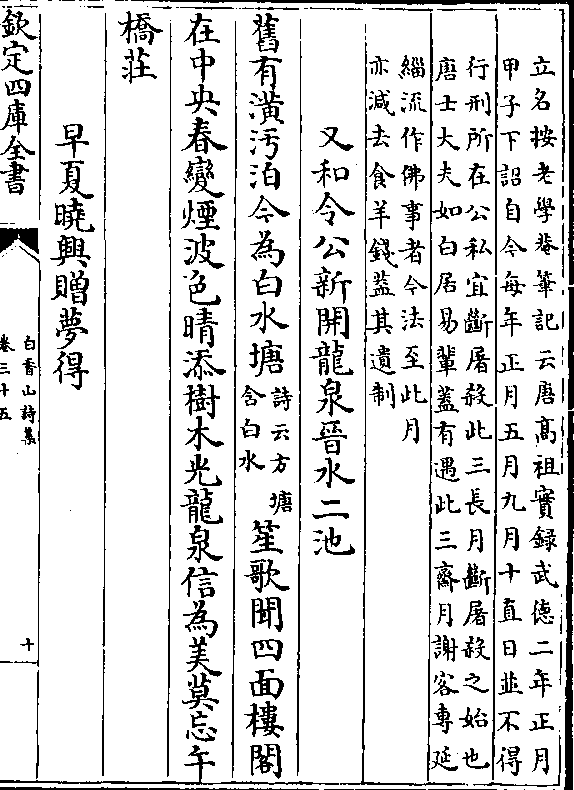 立名按老學菴筆記云唐髙祖實録武徳二年正月
甲子下詔自今每年正月五月九月十直日並不得
行刑所在公私宜斷屠殺此三長月斷屠殺之始也
唐士大夫如白居易輩蓋有遇此三齋月謝客専延
緇流作佛事者今法至此月
亦減去食羊錢蓋其遺制
又和令公新開龍泉晉水二池
舊有潢汚泊今為白水塘詩云方塘含白水笙歌聞四面樓閣
在中央春變煙波色晴添樹木光龍泉信為美莫忘午
橋莊
早夏曉興贈夢得
欽定四庫全書
白香山詩集
卷三十五
十